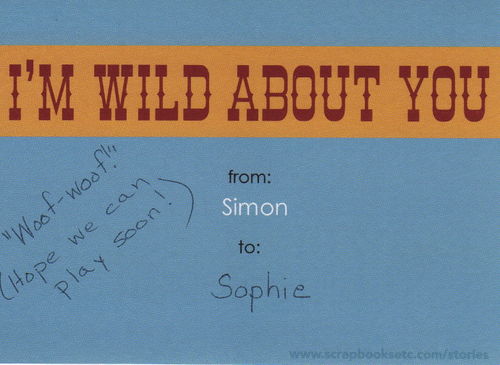 I'M WILD ABOUT YOU
"Woof-woof!"
(Hope we can
play soon!)
from:
Simon
to:
Sophie
www.scrapbooksetc.com/stories